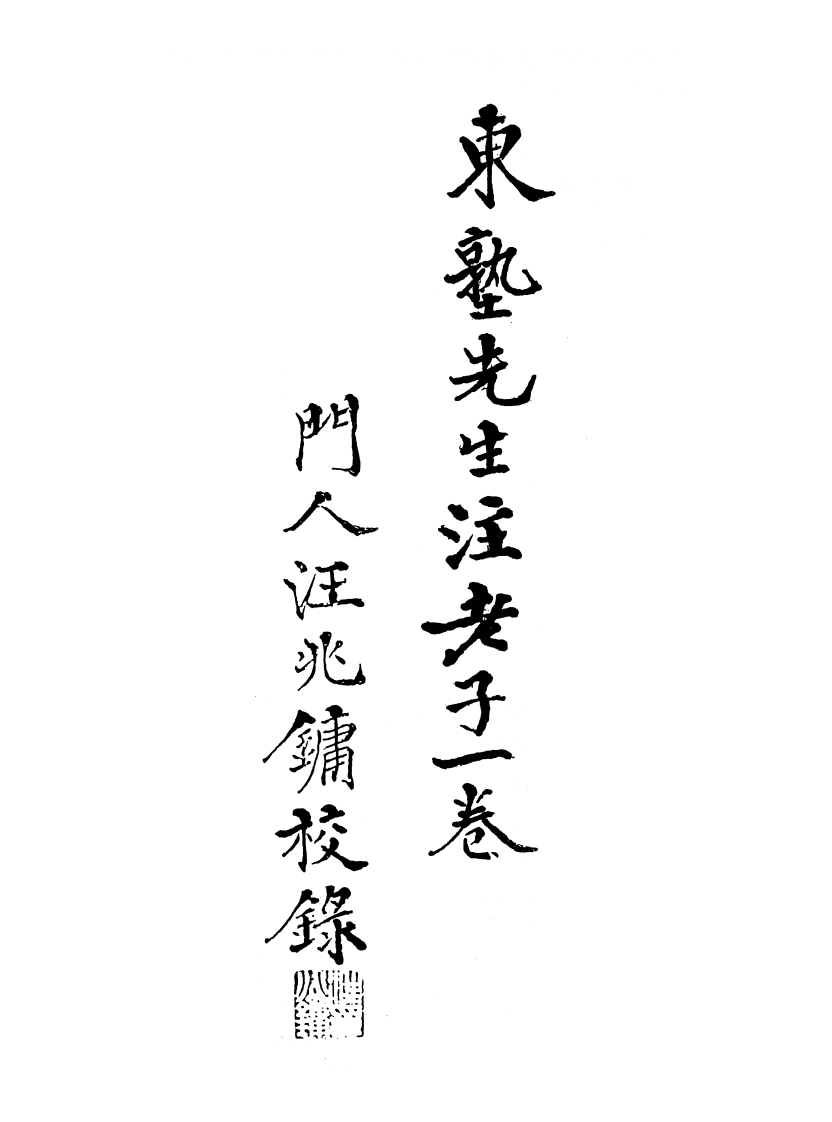 東塾先生注老子一卷
門人汪兆鏞校錄